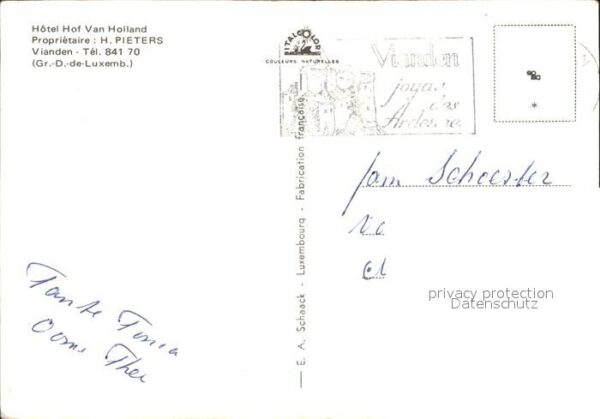 Hôtel Hof Van Holland
Propriétaire : H. PIETERS
Vianden - Tél. 841 70
(Gr.-D.-de-Luxemb.)
ITALCOLOR
COULEURS NATURELLES
Vianden
joyau
des
Ardennes
E. A. Schaack - Luxembourg - Fabrication française
fam Schoester
privacy protection
Datenschutz
Tante Tinia
Oome Theo